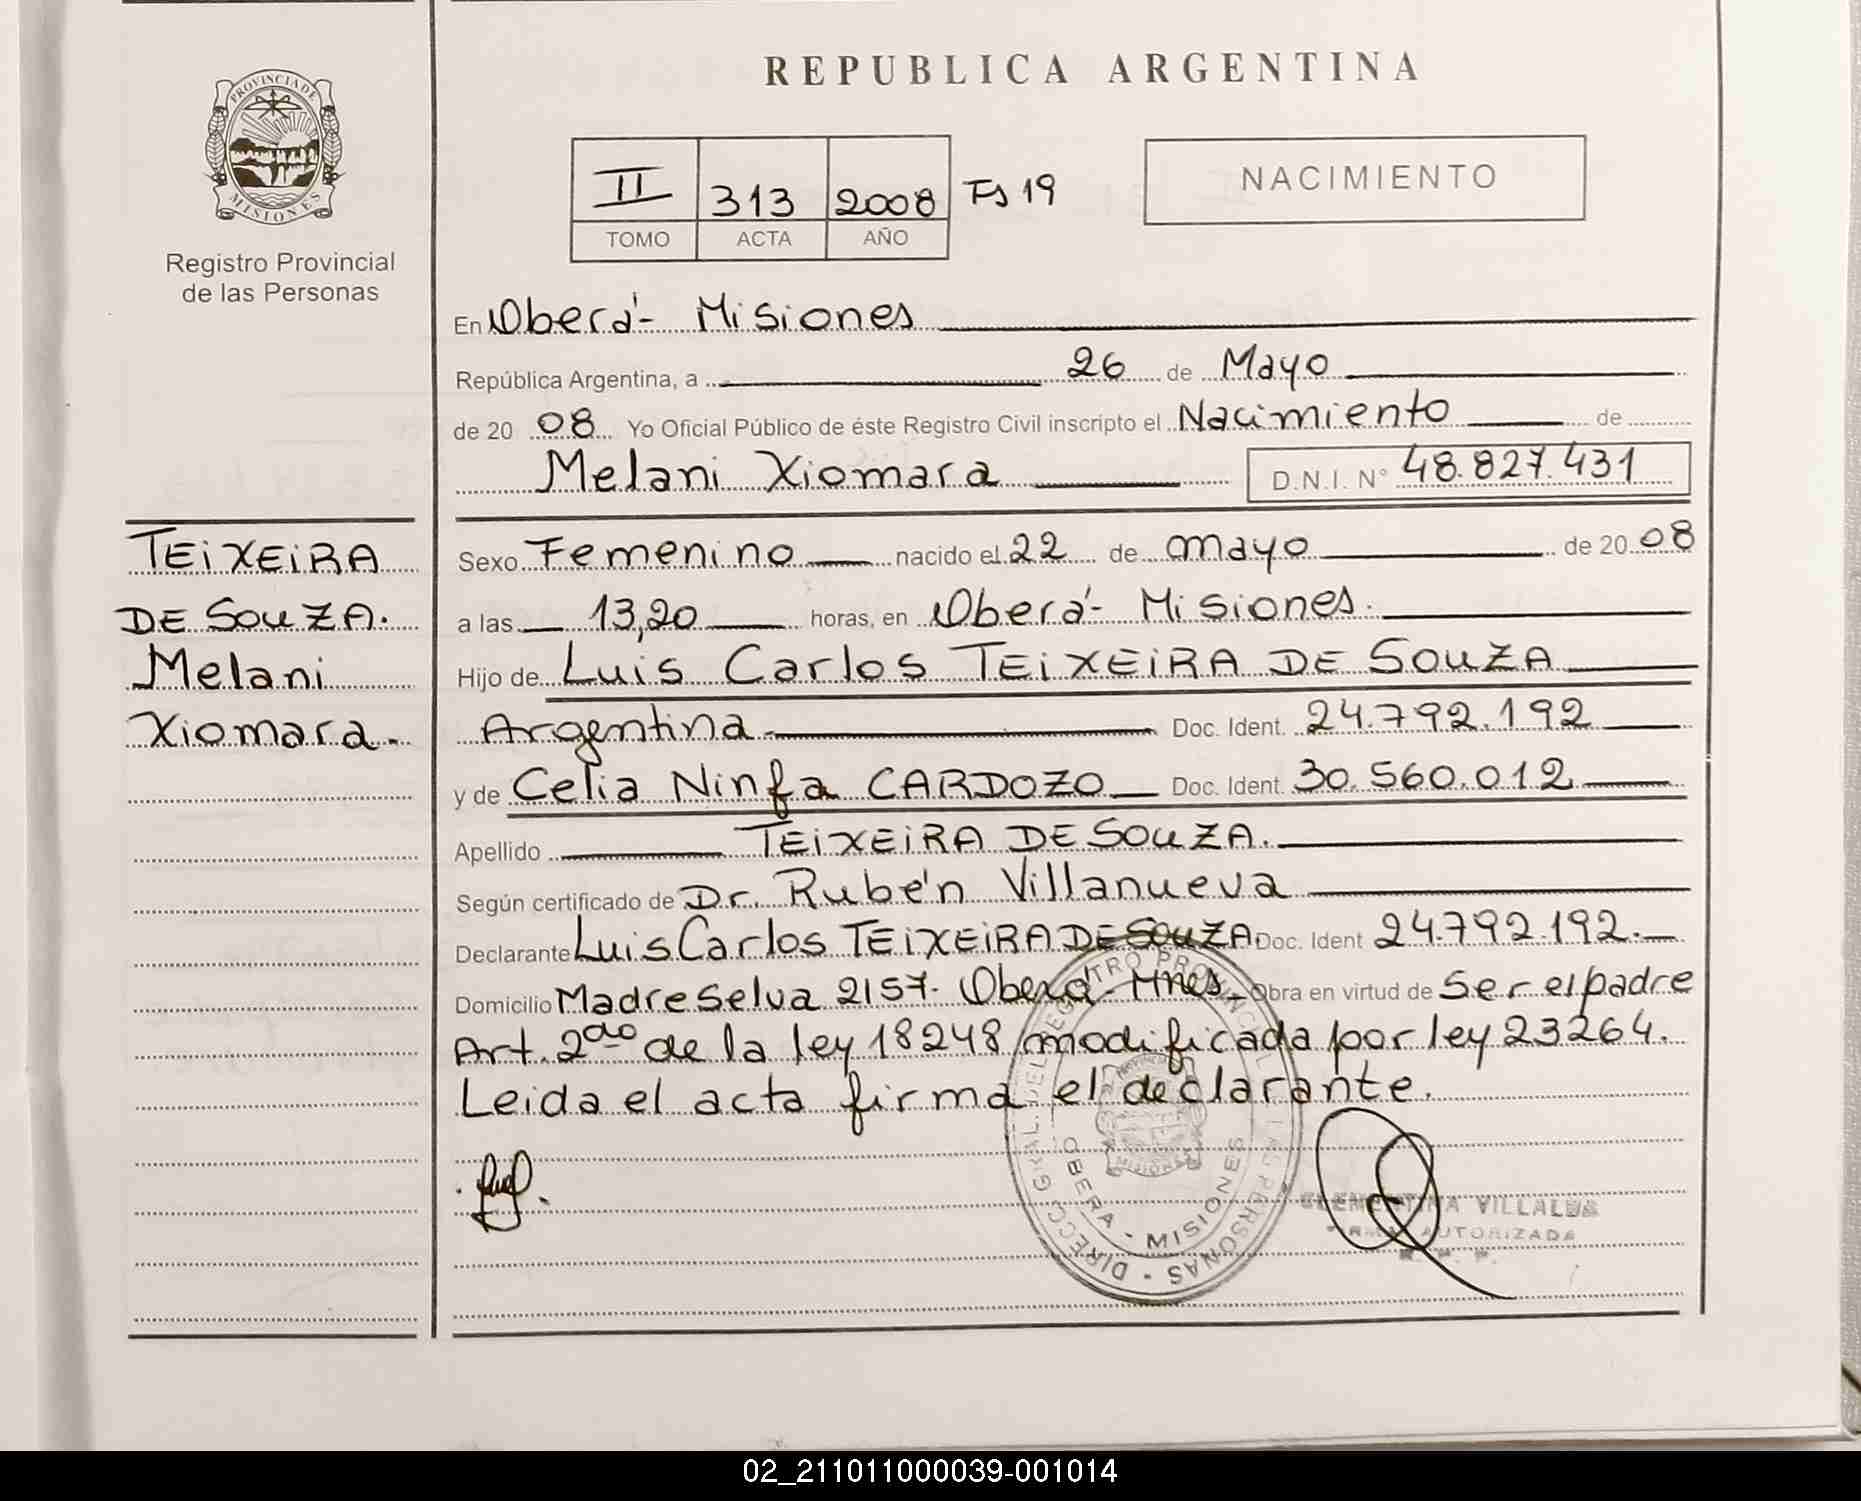 REPUBLICA ARGENTINA
PROVINCIA DE MISIONES
Registro Provincial
de las Personas
II 313 2008 Fs 19
TOMO ACTA AÑO
NACIMIENTO
En Oberá- Misiones
República Argentina, a 26 de Mayo
de 20 08 Yo Oficial Público de éste Registro Civil inscripto el Nacimiento de
Melani Xiomara D.N.I. N° 48.827.431
TEIXEIRA
DE SOUZA.
Melani
Xiomara.
Sexo Femenino nacido el 22 de mayo de 20 08
a las 13,20 horas, en Oberá- Misiones.
Hijo de Luis Carlos TEIXEIRA DE SOUZA
Argentina Doc. Ident. 24.792.192
y de Celia Ninfa CARDOZO Doc. Ident. 30.560.012
Apellido TEIXEIRA DE SOUZA.
Según certificado de Dr. Rubén Villanueva
Declarante Luis Carlos TEIXEIRA DE SOUZA Doc. Ident 24.792.192.
Domicilio Madreselva 2157- Oberá- Mnes Obra en virtud de Ser el padre
Art. 2do de la ley 18248 modificada por ley 23264.
Leida el acta firma el declarante.
DIRECC GRAL. DEL REGISTRO PROVINCIAL DE LAS PERSONAS
OBERA - MISIONES
CLEMENTINA VILLALBA
FIRMA AUTORIZADA
02_211011000039-001014